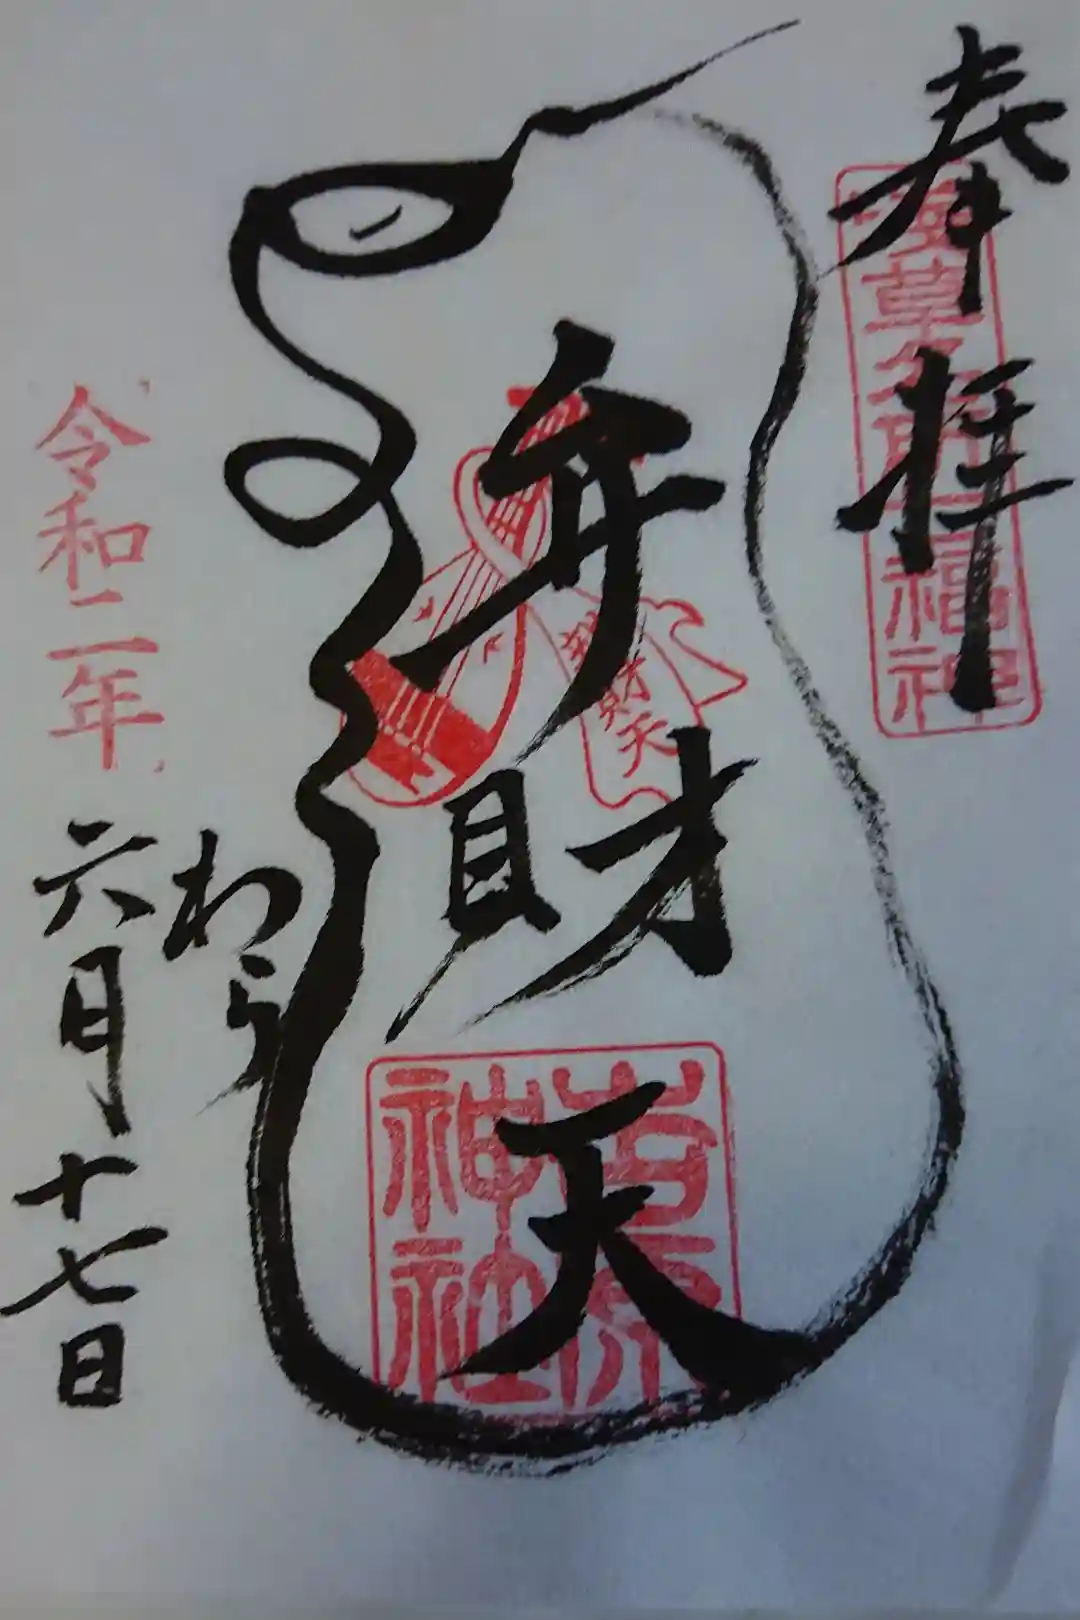 奉拝
浅草名所七福神
弁財天
弁財天
吉原神社
わらう
令和二年
六月十七日